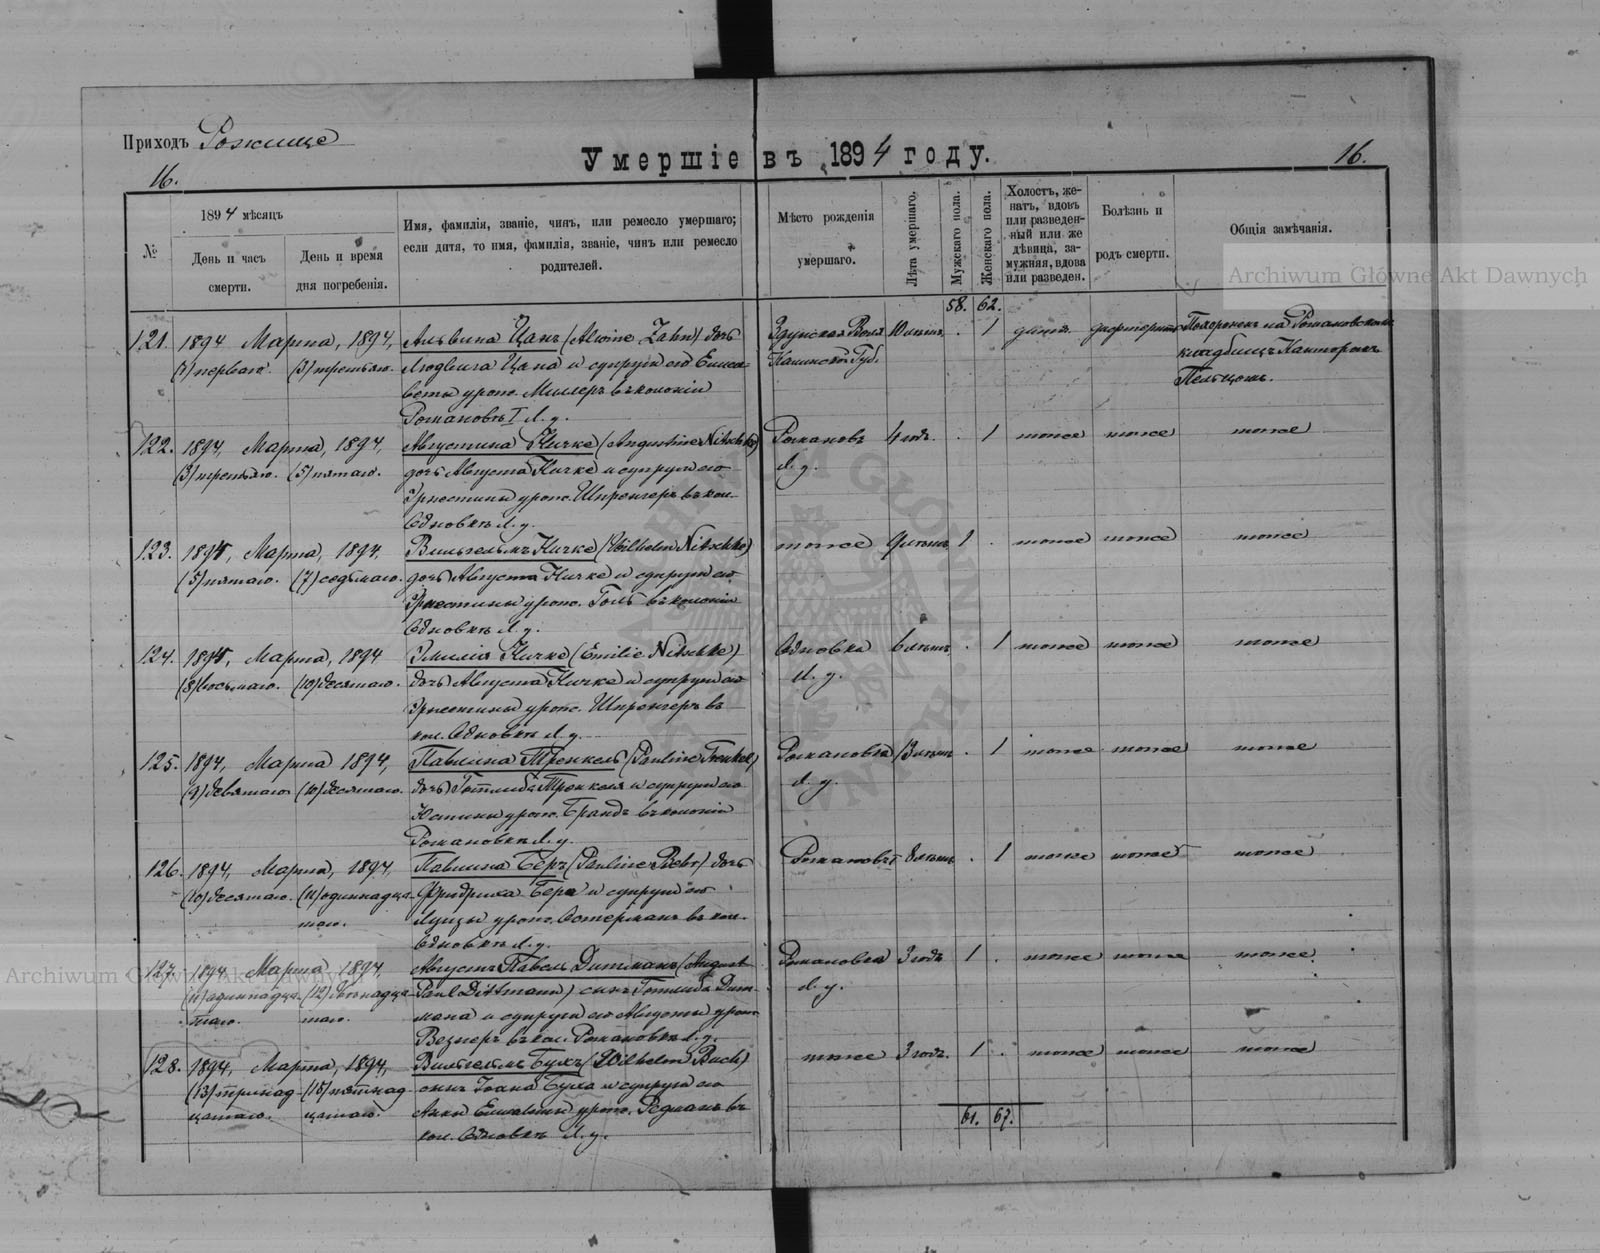 Приходъ Рожище
Умершіе въ 1894 году.
16.
16.
№
1894 мѣсяцъ
День и часъ смерти.
День и время дня погребенія.
Имя, фамилія, званіе, чинъ, или ремесло умершаго;
если дитя, то имя, фамилія, званіе, чинъ или ремесло
родителей.
Мѣсто рожденія
умершаго.
Лѣта умершаго.
Мужскаго пола.
Женскаго пола.
Холостъ, же-
натъ, вдовъ
или разведен-
ный или же
дѣвица, за-
мужняя, вдова
или разведен.
Болѣзнь и
родъ смерти.
Общія замѣчанія.
Archiwum Główne Akt Dawnych
58. 62.
121. 1894 Марта, 1894, Альвина Цанъ (Alwine Zahn) дочь
Здунская Воля 10 лѣтъ. . 1 дитя. дифтеритъ
(1) перваго. (3) третьяго. Людвига Цана и супруги его Елиса-
Калишской Губ.
веты урож. Миллеръ въ колоніи
Романовкѣ I Л. у.
122. 1894, Марта, 1894, Августина Ничке (Augustine Nitschke)
4 год. . 1 тоже тоже тоже
(3) третьяго. (5) пятаго. дочь Августа Ничке и супруги его
Л. у.
Эрнестины урож. Шпренгеръ въ кол.
Л. у.
123. 1894, Марта, 1894. Вильгельмъ Ничке (Wilhelm Nitschke)
тоже 9 лѣтъ. 1 . тоже тоже тоже
(5) пятаго. (7) седьмаго. дочь Августа Ничке и супруги его
Эрнестины урож. въ колоніи
Л. у.
124. 1894, Марта, 1894 Эмилія Ничке (Emilie Nitschke)
6 лѣтъ. . 1 тоже тоже тоже
(8) восьмаго. (10) десятаго. дочь Августа Ничке и супруги его
Л. у.
Эрнестины урож. Шпренгеръ въ
кол. Л. у.
125. 1894, Марта 1894, Павлина Тренкель (Pauline Trenkel)
Романовка 13 лѣтъ . 1 тоже тоже тоже
(9) девятаго (10) десятаго. дочь Готлиба Тренкеля и супруги его
Л. у.
Юстины урож. Брандъ въ колоніи
Романовкѣ Л. у.
126. 1894, Марта, 1894, Павлина Беръ (Pauline Behr) дочь
8 лѣтъ . 1 тоже тоже тоже
(10) десятаго. (11) одиннадца- Фридриха Бера и супруги его
таго. Луизы урож. Остерманъ въ кол.
Л. у.
127. 1894, Марта, 1894, Августъ Павелъ Дитманъ (August
Романовка 3 годъ 1 . тоже тоже тоже
(11) одиннадца- (12) двѣнадца- Paul Dittmann) сынъ Готлиба Дит-
Л. у.
таго. таго. мана и супруги его урож.
въ кол. Романовкѣ Л. у.
Archiwum Główne Akt Dawnych
128. 1894, Марта, 1894, Вильгельмъ Бухъ (Wilhelm Buch)
тоже 3 годъ. 1 . тоже тоже тоже
(13) тринад- (15) пятнад- сынъ Іоана Буха и супруги его
цатаго. цатаго. Анны Елисаветы урож. въ
кол. Л. у.
61. 67.